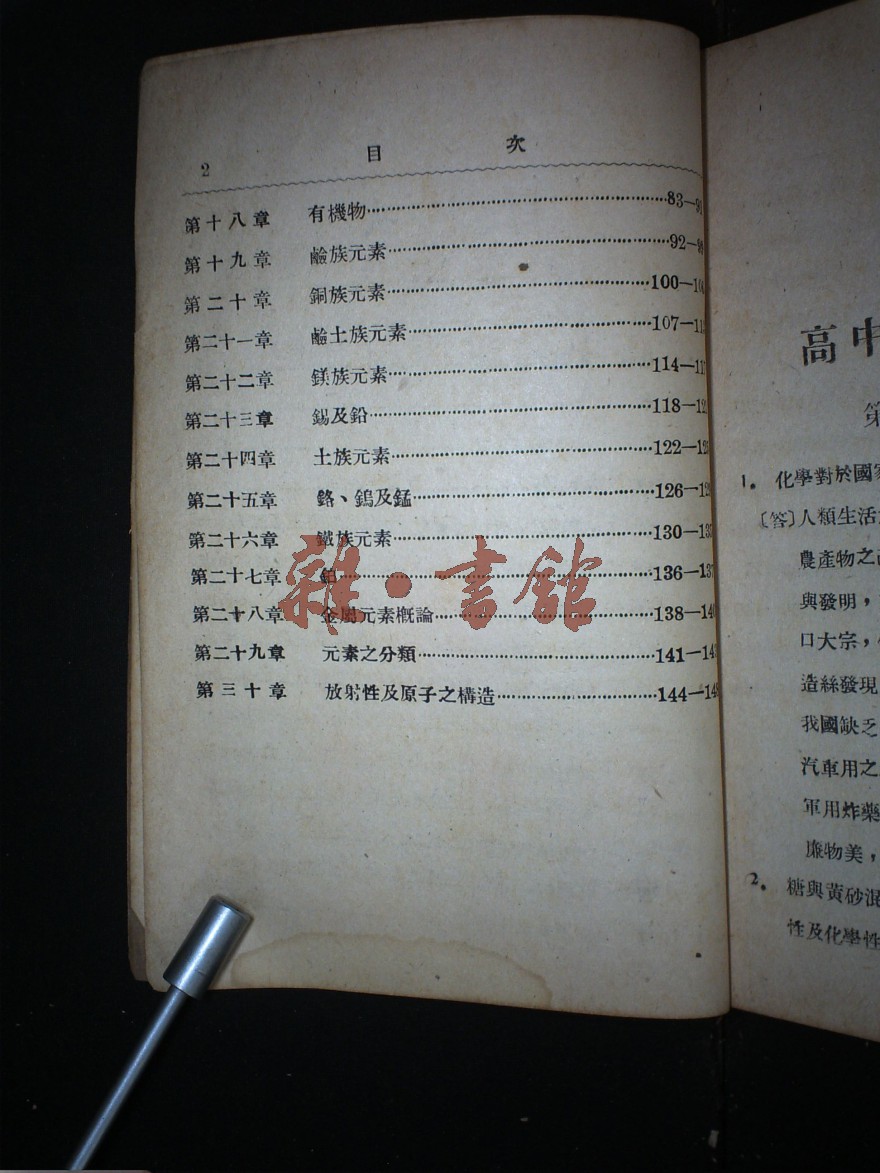 2 目 次
第十八章 有機物……83—91
第十九章 鹼族元素……92—99
第二十章 銅族元素……100—10
第二十一章 鹼土族元素……107—11
第二十二章 鎂族元素……114—11
第二十三章 錫及鉛……118—12
第二十四章 土族元素……122—12
第二十五章 鉻、鎢及錳……126—12
第二十六章 鐵族元素……130—13
第二十七章 鉑……136—13
第二十八章 金屬元素概論……138—140
第二十九章 元素之分類……141—14
第三十章 放射性及原子之構造……144—14
雜·書館
高中
第
1. 化學對於國家
〔答〕人類生活
農產物之
與發明，
口大宗，
造絲發現
我國缺乏
汽車用之
軍用炸藥
廉物美，
2. 糖與黃砂混
性及化學性